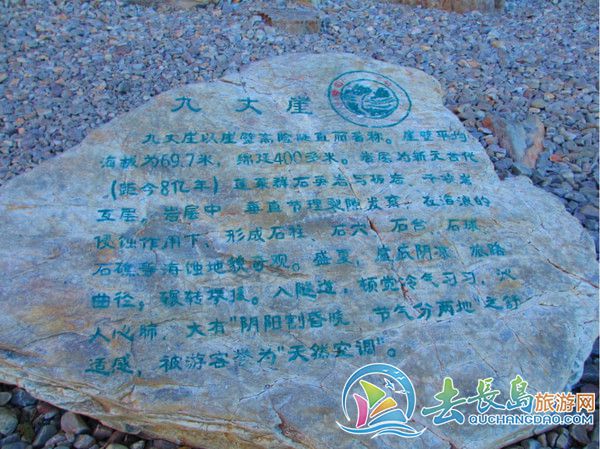 九丈崖
九丈崖以崖壁高险陡直而著称。崖壁平均
海拔为69.7米，绵延400多米。岩层为新元古代
（距今8亿年）蓬莱群石英岩与板岩、千枚岩
互层。岩层中，垂直节理裂隙发育，在海浪的
侵蚀作用下，形成石柱、石穴、石台、石球、
石礁等海蚀地貌奇观。盛夏，崖底阴凉，旅路
曲径，辗转攀援。入隧道，顿觉冷气习习，沁
人心肺，大有"阴阳割昏晓，节气分两地"之舒
适感，被游客誉为"天然空调"。
去長岛旅游网
QUCHANGDAO.COM